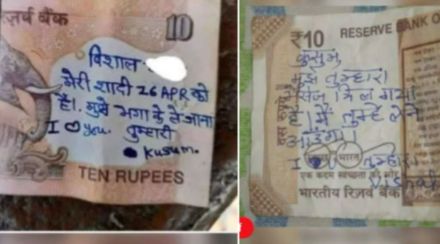 ज़र्व बैंक
10
विशाल
मेरी शादी 26 APR को
है। मुझे भगा के ले जाना
I ♡ You तुम्हारी
Kusum.
TEN RUPEES
₹10 RESERVE BANK O
कुसुम
मुझे तुम्हारा
मिल गया
मैं तुम्हें लेने
आउंगा
I तुम्हारा
एक कदम स्वच्छता की ओर
भारतीय रिज़र्व बैंक